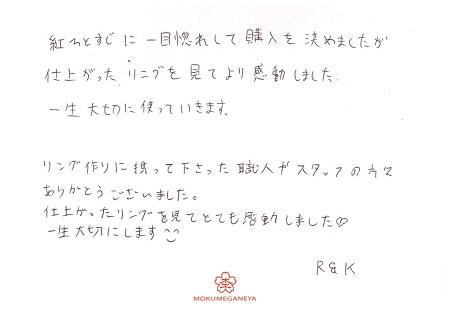 紅ひとすじに一目惚れして購入を決めましたが
仕上がった リングを見てより感動しました.
一生大切に使っていきます.
リング作りに携って下さった職人やスタッフの方々
ありがとうございました。
仕上がったリングを見てとても感動しました♡
一生大切にします
R&K
MOKUMEGANEYA